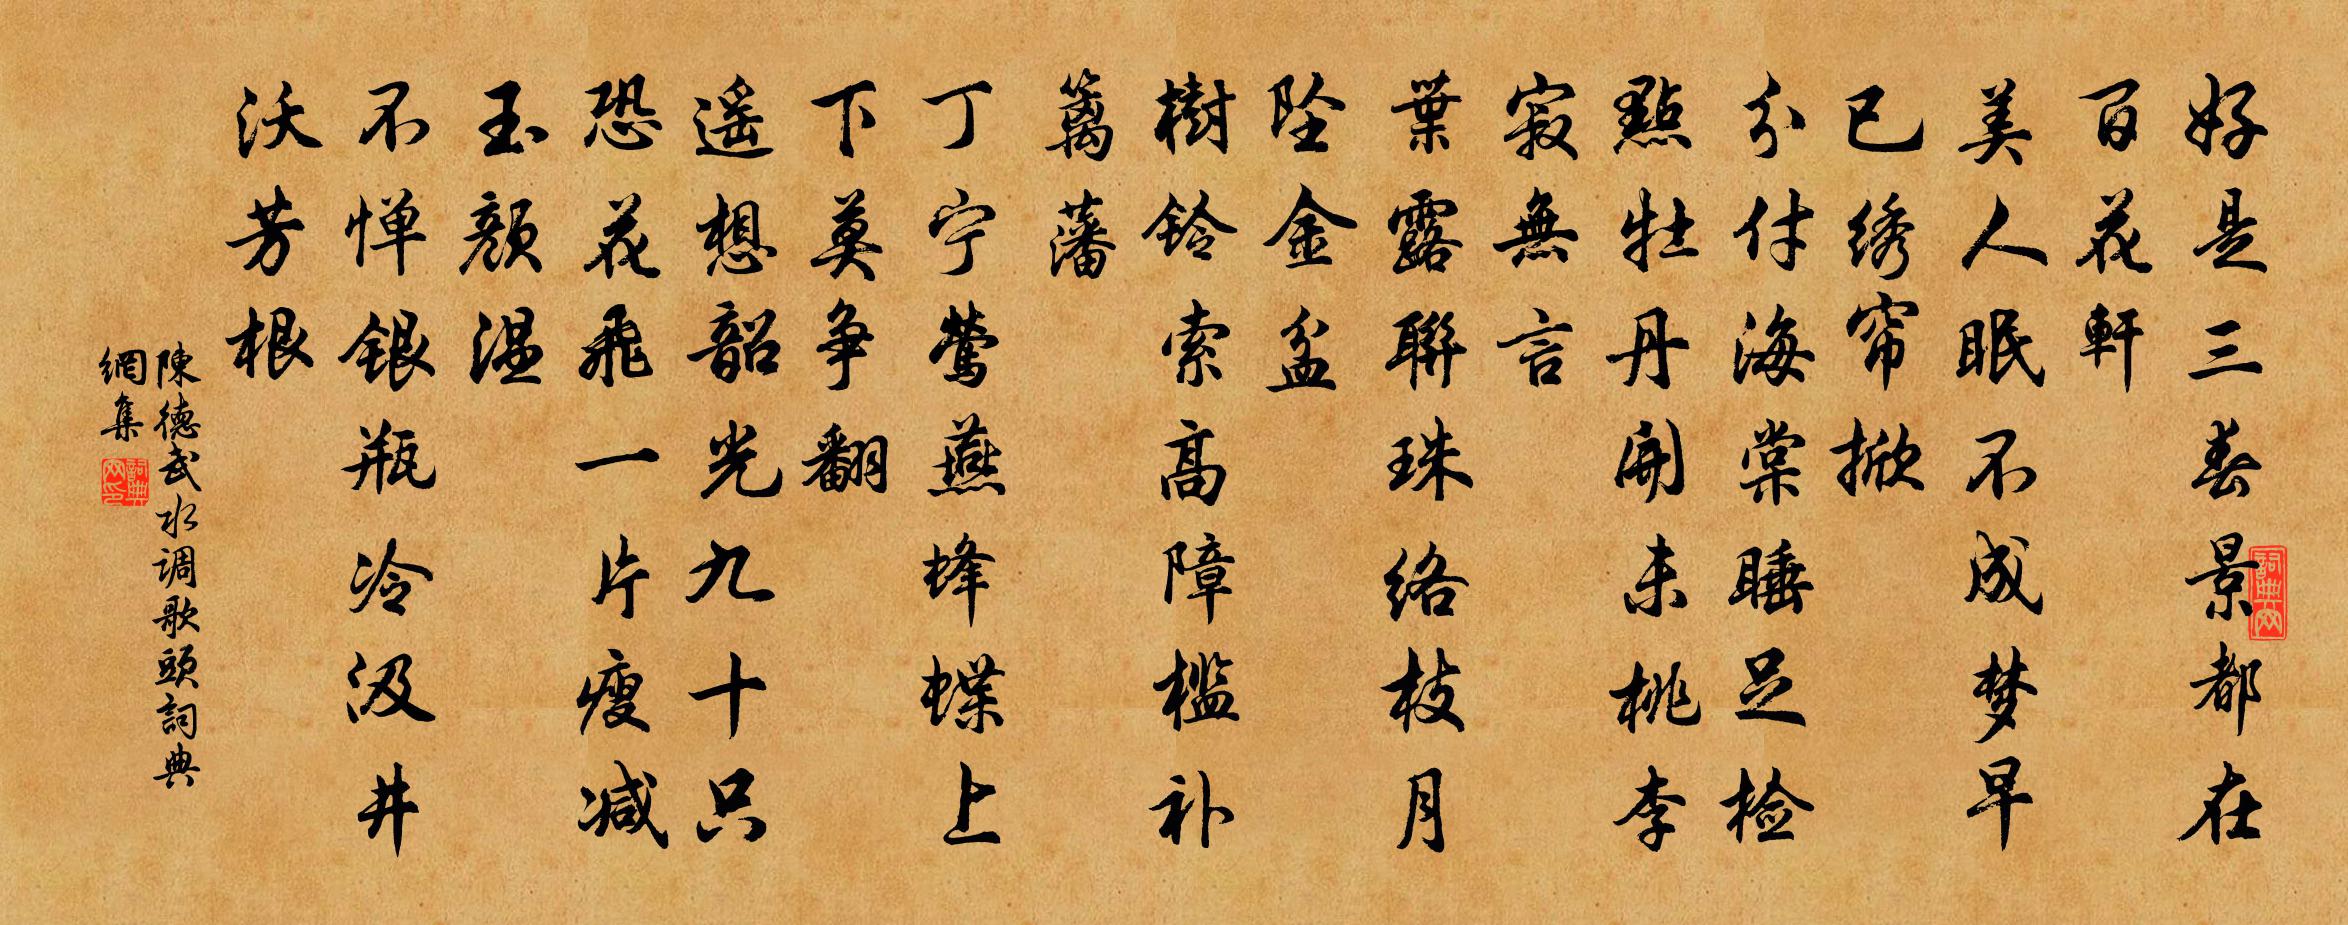 好是三春景都在
百花軒
美人眠不成梦早
已绣帘掀
分付海棠睡足检
點牡丹開未桃李
寂無言
葉露聯珠络枝月
坠金盆
樹铃索高障槛补
篱藩
丁宁莺燕蜂蝶上
下莫争翻
遥想韶光九十只
恐花飛一片瘦减
玉顔温
不惮银瓶冷汲井
沃芳根
陳德武水调歌頭詞典
網集
詞典网
詞典网印